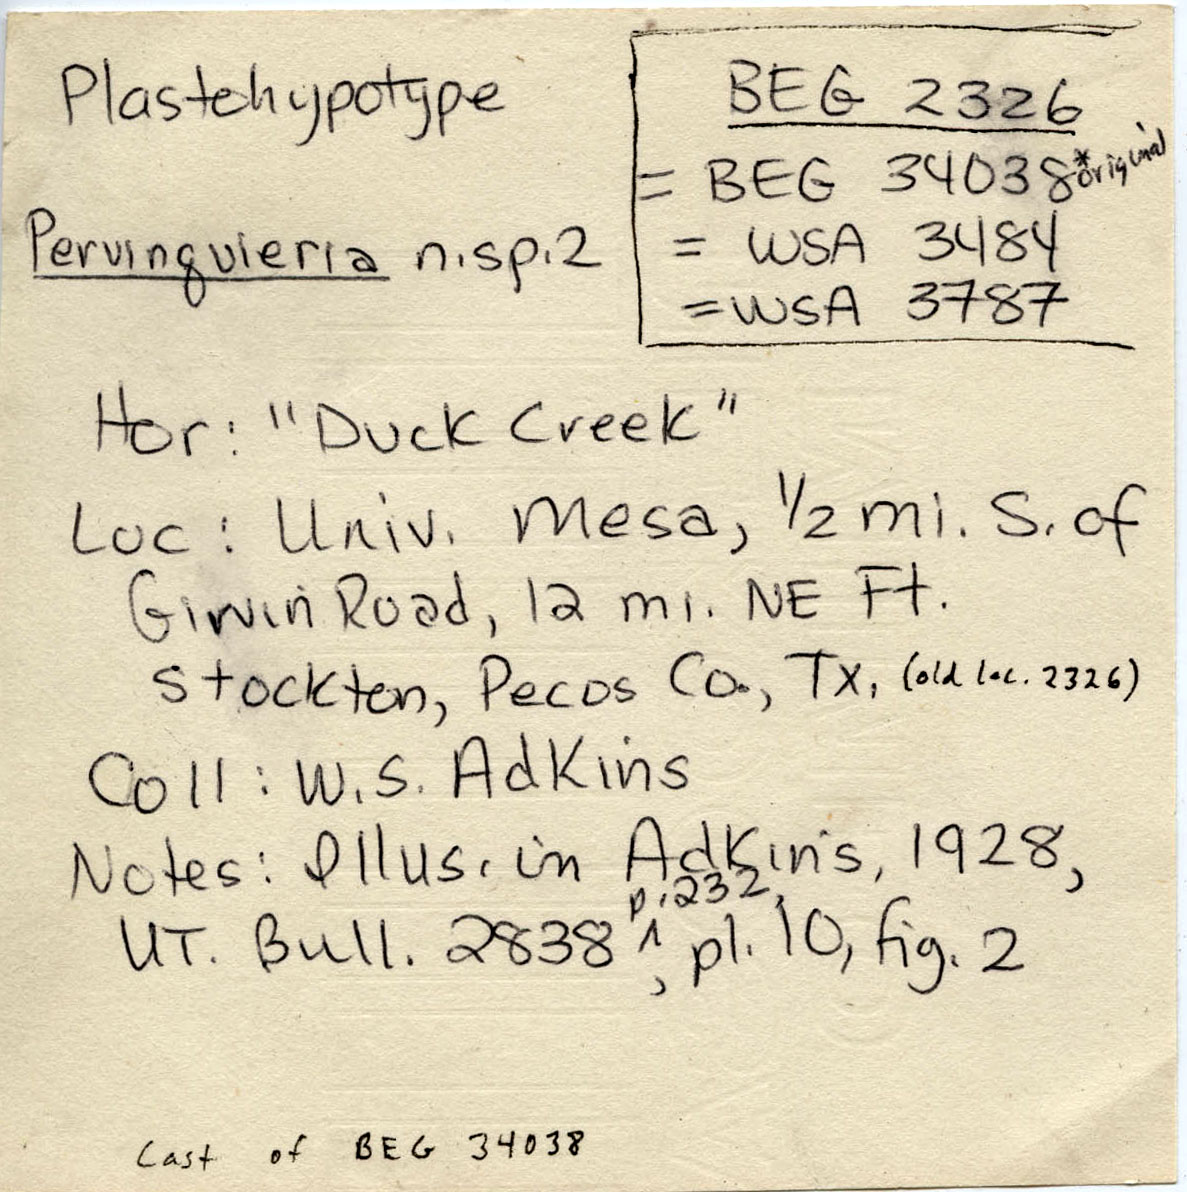 Plastehypotype
BEG 2326
= BEG 34038 *original
Pervinquieria n.sp.2
= WSA 3484
= WSA 3787
Hor: "Duck Creek"
Loc: Univ. Mesa, 1/2 mi. S. of
Girvin Road, 12 mi. NE Ft.
Stockton, Pecos Co., Tx, (old loc. 2326)
Coll: W.S. Adkins
Notes: Illus. in Adkins, 1928,
p. 232,
UT. Bull. 2838 ^, pl. 10, fig. 2
Cast of BEG 34038